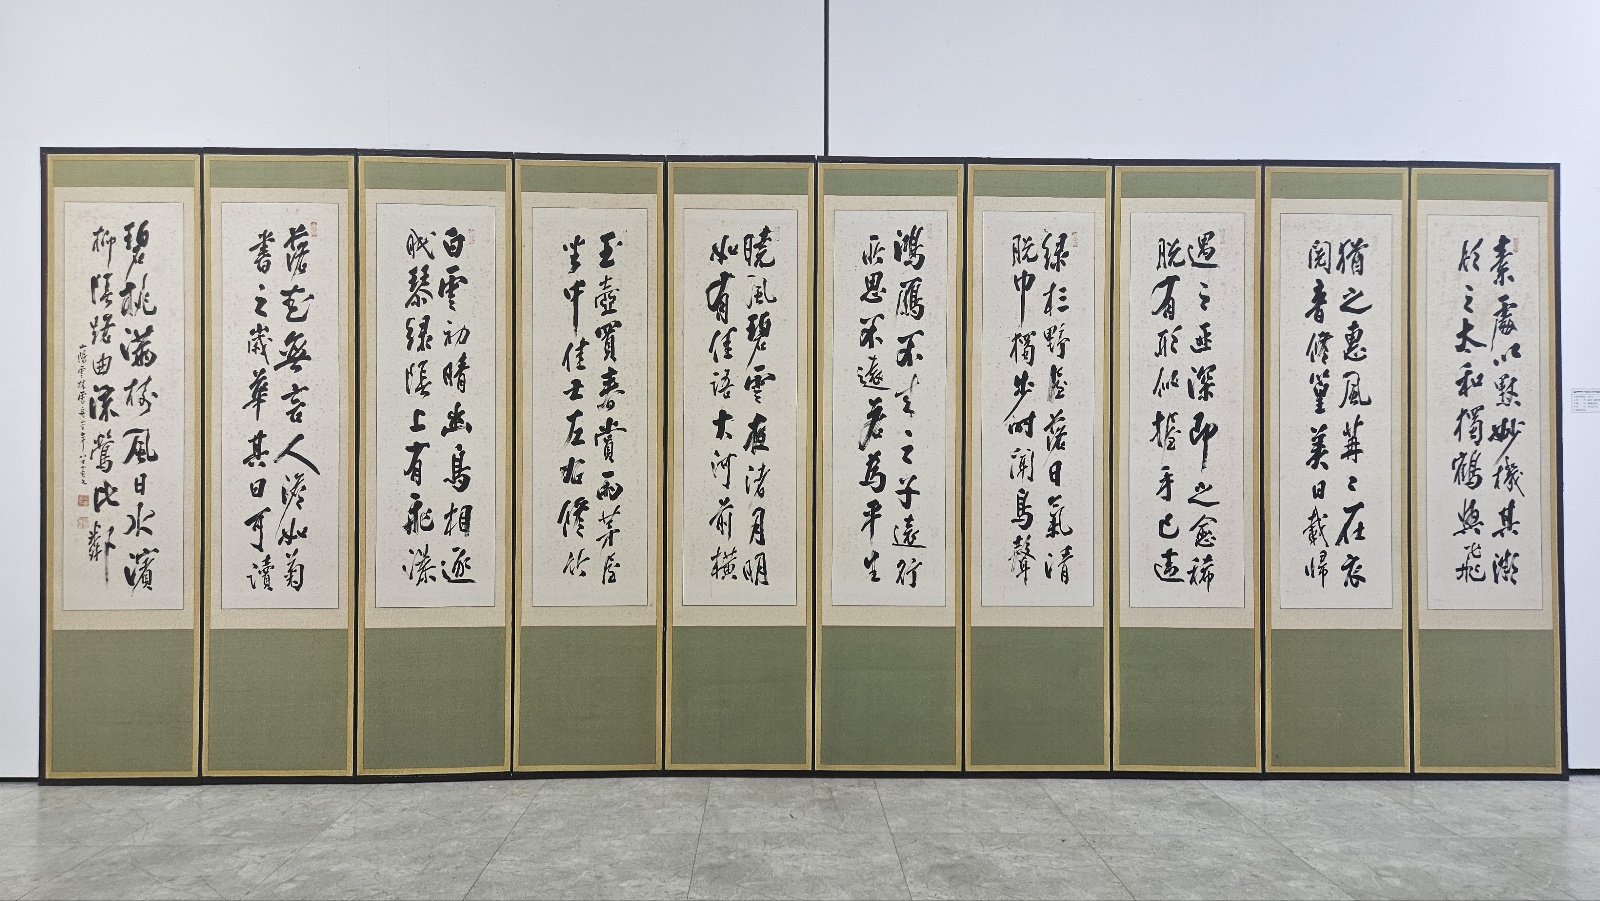 素處以默妙機其微
飲之太和獨鶴與飛
猶之惠風苒〻在衣
閱音修篁美曰載歸
遇之匪深即之愈稀
脫有形似握手已違
綠杉野屋落日氣清
脫巾獨步時聞鳥聲
鴻雁不來之子遠行
所思不遠若為平生
曉風碧雲夜渚月明
如有佳語大河前橫
玉壺買春賞雨茅屋
坐中佳士左右修竹
白雲初晴幽鳥相逐
眠琴綠陰上有飛瀑
落花無言人澹如菊
書之歲華其曰可讀
碧桃滿樹風日水濱
柳陰路曲流鶯比鄰